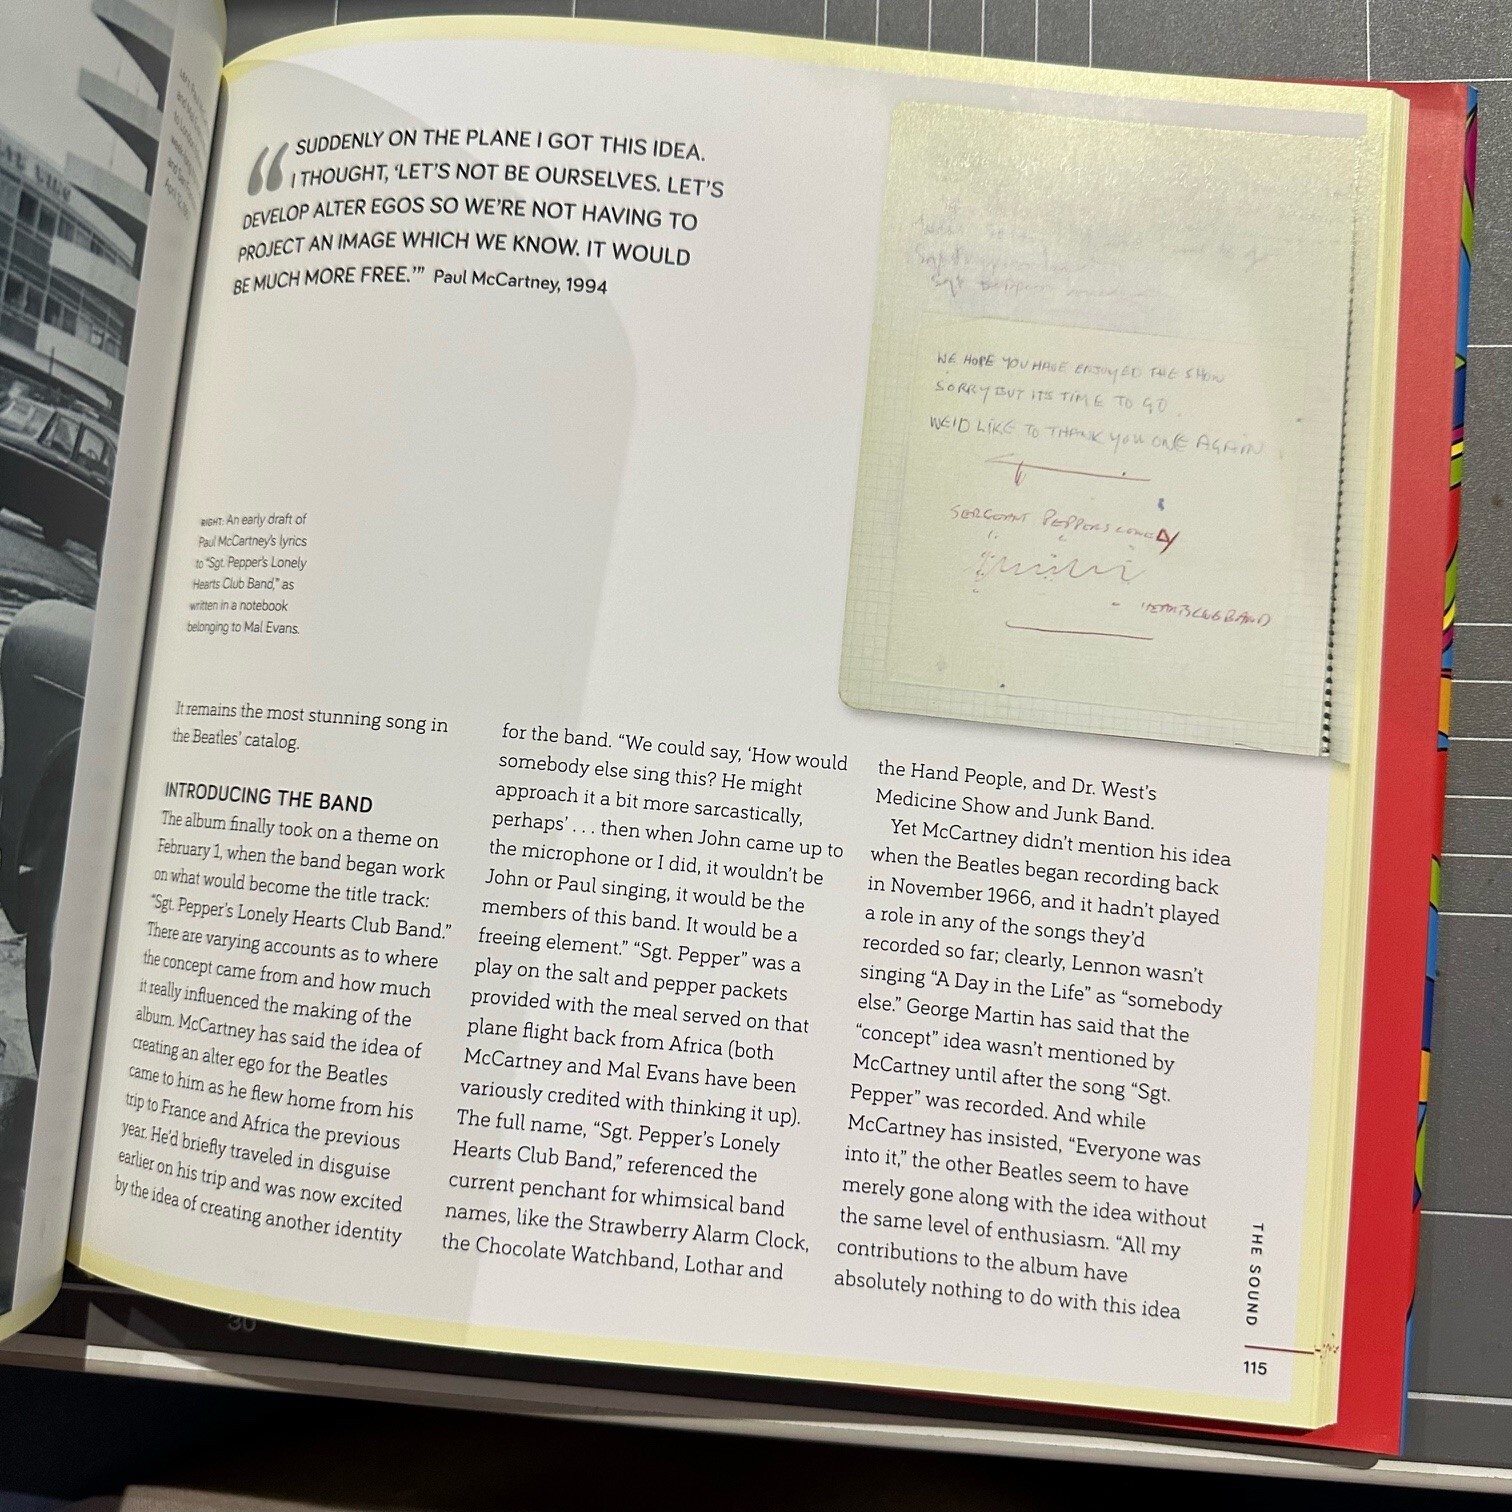 SUDDENLY ON THE PLANE I GOT THIS IDEA.
I THOUGHT, ‘LET’S NOT BE OURSELVES. LET’S
DEVELOP ALTER EGOS SO WE’RE NOT HAVING TO
PROJECT AN IMAGE WHICH WE KNOW. IT WOULD
BE MUCH MORE FREE.’” Paul McCartney, 1994
WE HOPE YOU HAVE ENJOYED THE SHOW
SORRY BUT ITS TIME TO GO.
WE'D LIKE TO THANK YOU ONE AGAIN.
PEPPERS
BAND
RIGHT: An early draft of
Paul McCartney’s lyrics
to “Sgt. Pepper’s Lonely
Hearts Club Band,” as
written in a notebook
belonging to Mal Evans.
It remains the most stunning song in
the Beatles’ catalog.
INTRODUCING THE BAND
The album finally took on a theme on
February 1, when the band began work
on what would become the title track:
“Sgt. Pepper’s Lonely Hearts Club Band.”
There are varying accounts as to where
the concept came from and how much
it really influenced the making of the
album. McCartney has said the idea of
creating an alter ego for the Beatles
came to him as he flew home from his
trip to France and Africa the previous
year. He’d briefly traveled in disguise
earlier on his trip and was now excited
by the idea of creating another identity
for the band. “We could say, ‘How would
somebody else sing this? He might
approach it a bit more sarcastically,
perhaps’ . . . then when John came up to
the microphone or I did, it wouldn’t be
John or Paul singing, it would be the
members of this band. It would be a
freeing element.” “Sgt. Pepper” was a
play on the salt and pepper packets
provided with the meal served on that
plane flight back from Africa (both
McCartney and Mal Evans have been
variously credited with thinking it up).
The full name, “Sgt. Pepper’s Lonely
Hearts Club Band,” referenced the
current penchant for whimsical band
names, like the Strawberry Alarm Clock,
the Chocolate Watchband, Lothar and
the Hand People, and Dr. West’s
Medicine Show and Junk Band.
Yet McCartney didn’t mention his idea
when the Beatles began recording back
in November 1966, and it hadn’t played
a role in any of the songs they’d
recorded so far; clearly, Lennon wasn’t
singing “A Day in the Life” as “somebody
else.” George Martin has said that the
“concept” idea wasn’t mentioned by
McCartney until after the song “Sgt.
Pepper” was recorded. And while
McCartney has insisted, “Everyone was
into it,” the other Beatles seem to have
merely gone along with the idea without
the same level of enthusiasm. “All my
contributions to the album have
absolutely nothing to do with this idea
THE SOUND
115
30